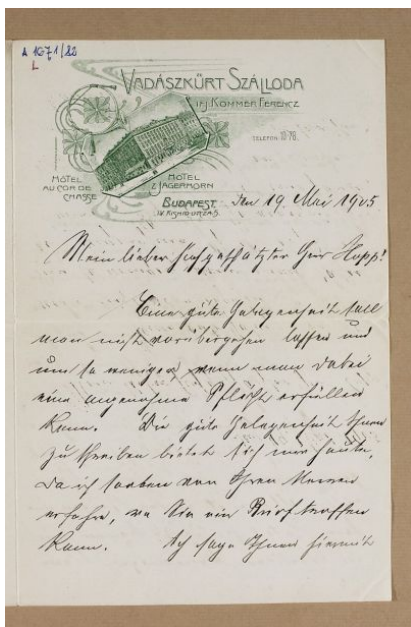 A 1671/22
L
VADÁSZKÜRT SZÁLLODA
IFJ KOMMER FERENCZ
TELEFON
HÓTEL
AU COR DE
CHASSE
HOTEL
Z. JÄGERHORN
BUDAPEST
IV.
den 19. Mai 1905
Mein lieber hochgeschätzter Herr Hopp!
Eine gute Gelegenheit soll
man nicht vorübergehen lassen und
um so weniger, wenn man dabei
eine angenehme Pflicht erfüllen
kann. Die gute Gelegenheit Ihnen
zu schreiben bietet sich mir heute,
da ich soeben von Ihrem
erfahre, wo Sie ein Brief treffen
kann. Ich sage Ihnen hiemit